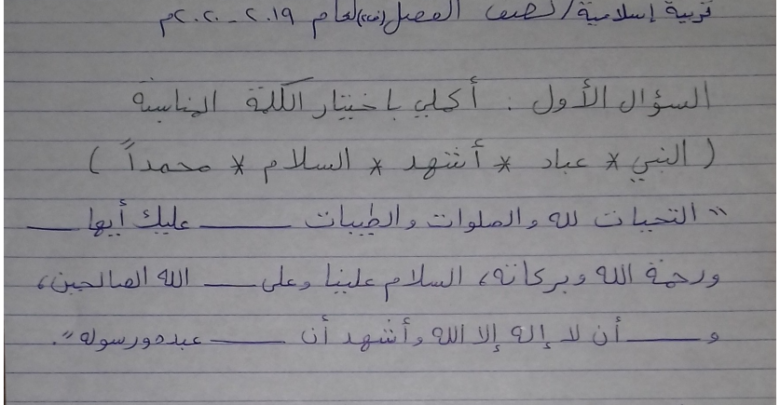 تربية إسلامية / نصف الفصل (ف٢) لعام ٢٠١٩ - ٢٠٢٠م
السؤال الأول : أكملي باختيار الكلمة المناسبة
( النبي * عباد * أشهد * السلام * محمداً )
" التحيات لله والصلوات والطيبات ____ عليك أيها ____
ورحمة الله وبركاته، السلام علينا وعلى ____ الله الصالحين،
و ____ أن لا إله إلا الله وأشهد أن ____ عبده ورسوله ".